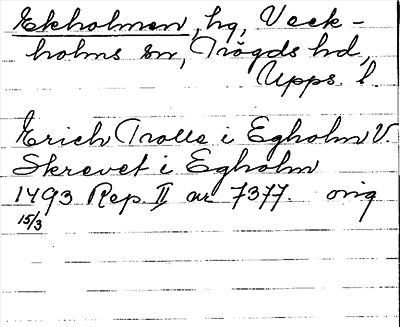 Ekholmen, hg, Veck-
holms sn, Trögds hd,
Upps. l.
Erich Trolle i Egholm V.
Skrevet i Egholm
1493 Rep. II nr 7377. orig
15/3